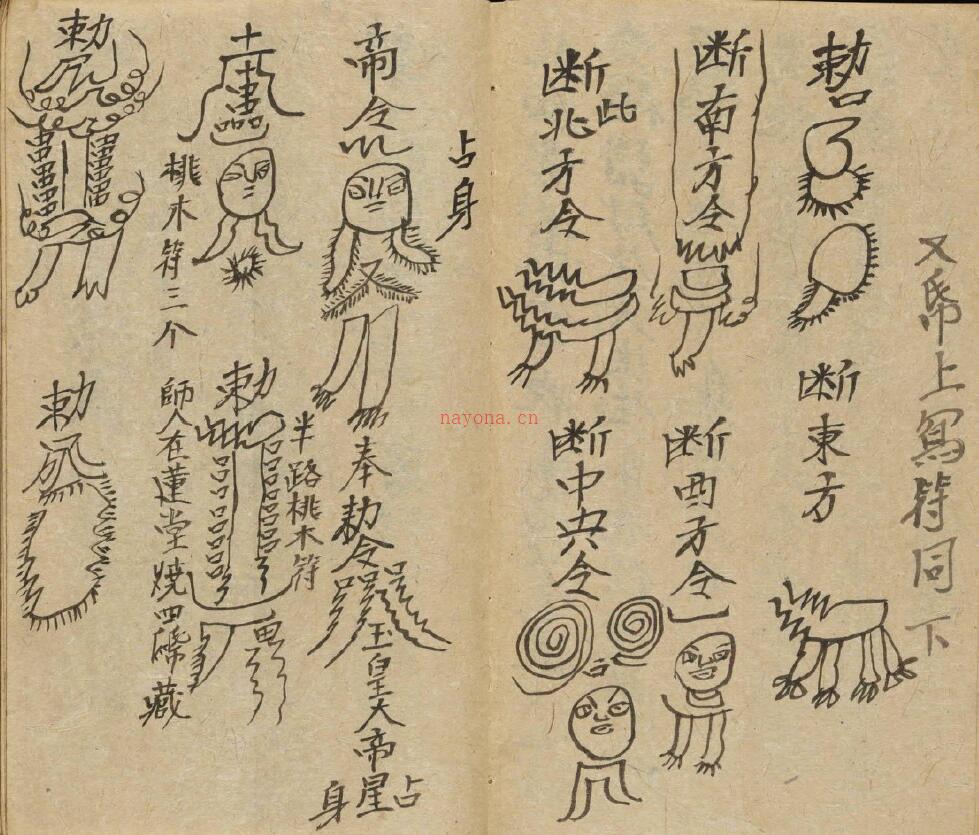 又帋上寫符同下
勅
断東方
断南方令
断西方令
断北方令
此
断中央令
占
占身
帝令
奉勅令
玉皇大帝星
占身
半路桃木符
勅
桃木符三个
師人在蓮堂燒四
藏
勅
勅
nayona.cn